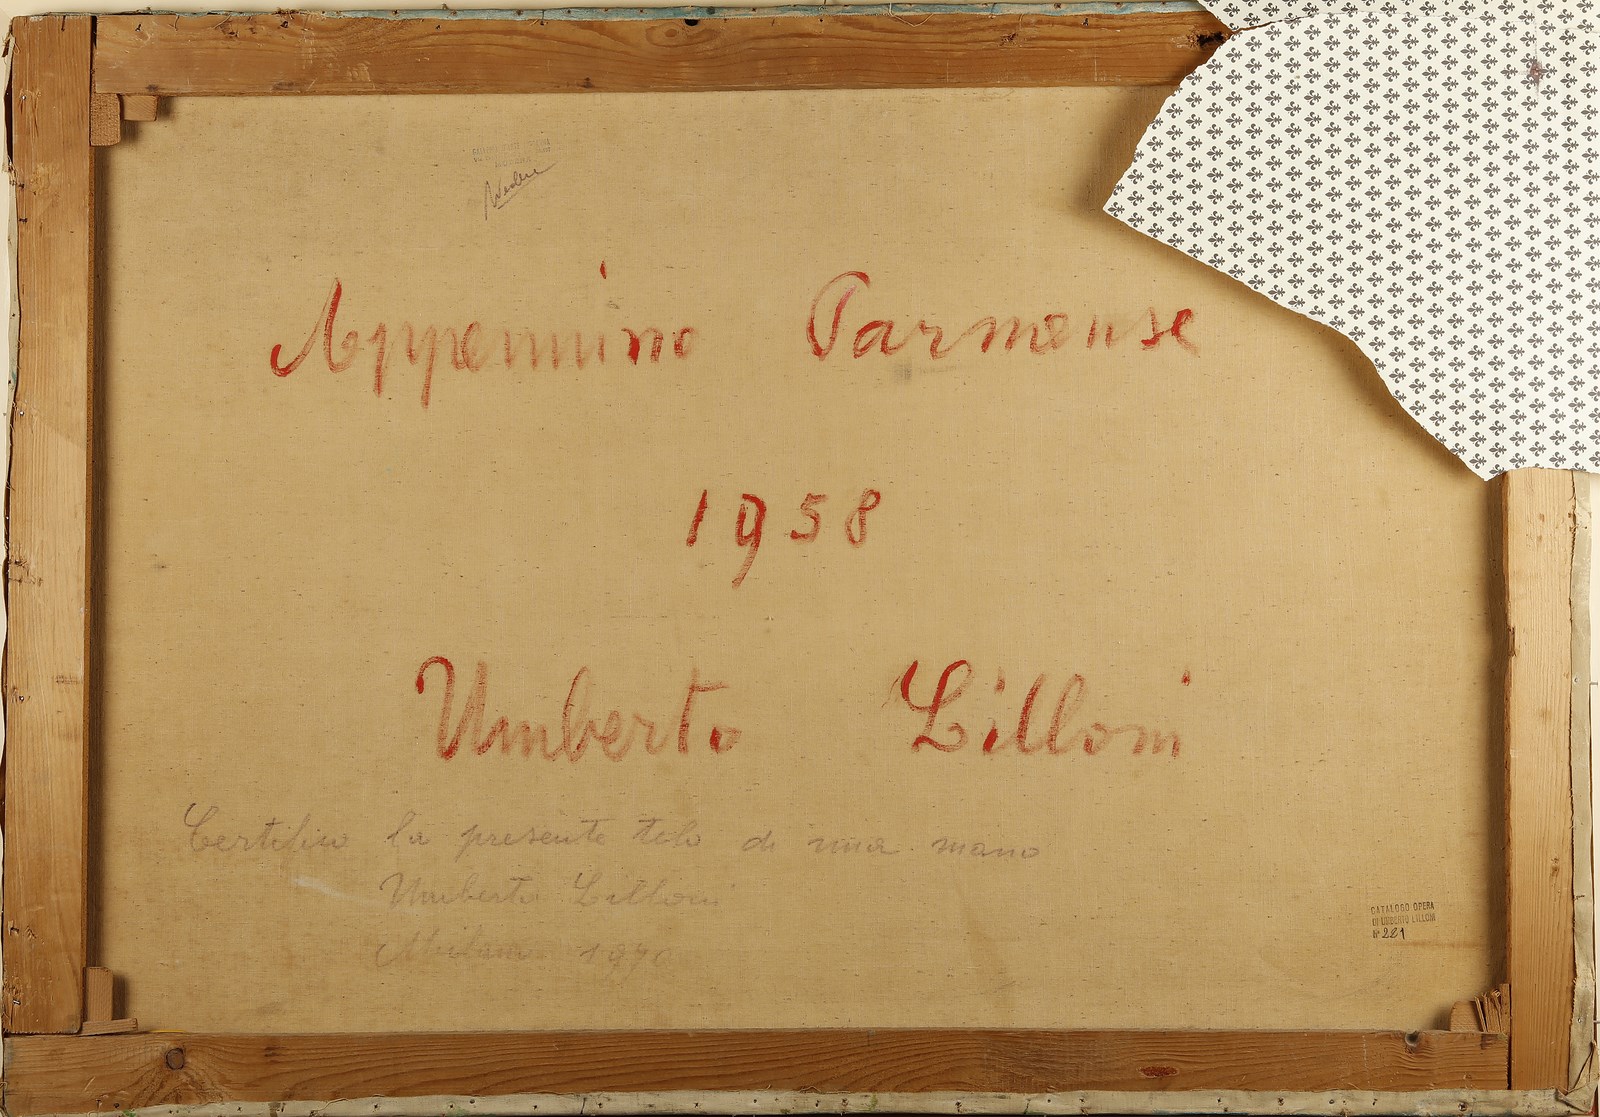 Appennino Parmense
1958
Umberto Lilloni
Certifico la presente tela di mia mano
Umberto Lilloni
Milano 1970
CATALOGO OPERA
DI UMBERTO LILLONI
N° 221